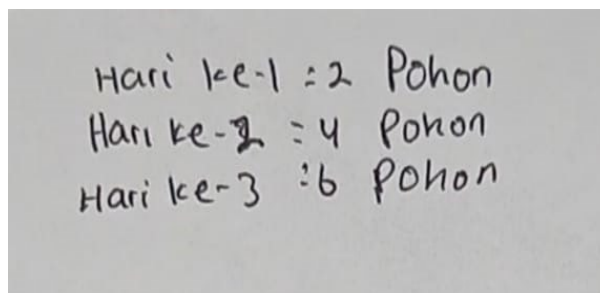 Hari ke-1 : 2 Pohon
Hari ke-2 : 4 Pohon
Hari ke-3 : 6 Pohon